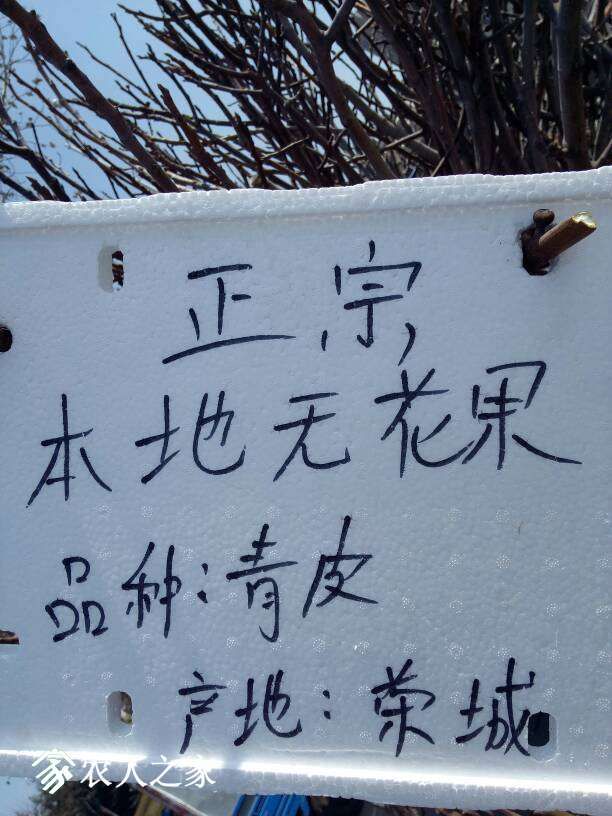 正宗
本地无花果
品种:青皮
产地:荣城
农人之家